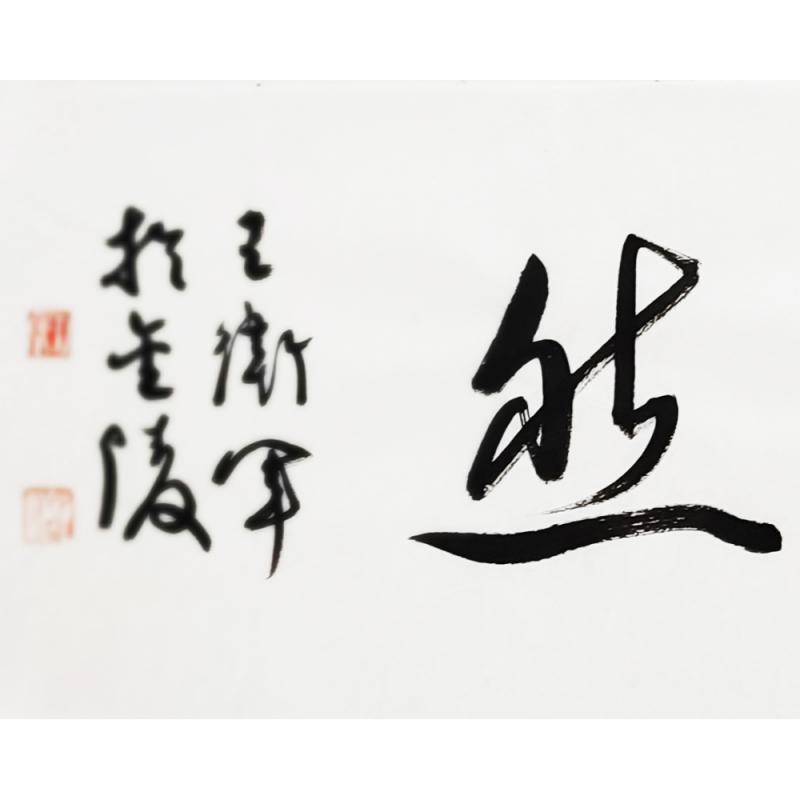 然
王衛軍
於金陵